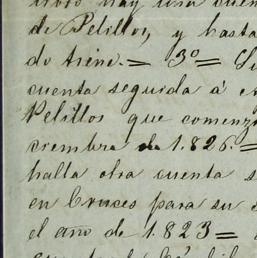 hay una cuen
de Pelillos, y hasta
do Irene.= 3º=
cuenta seguida á
Pelillos que comenz
ciembre de 1.826.=
halla otra cuenta s
en Cruces para su
el año de 1.823=